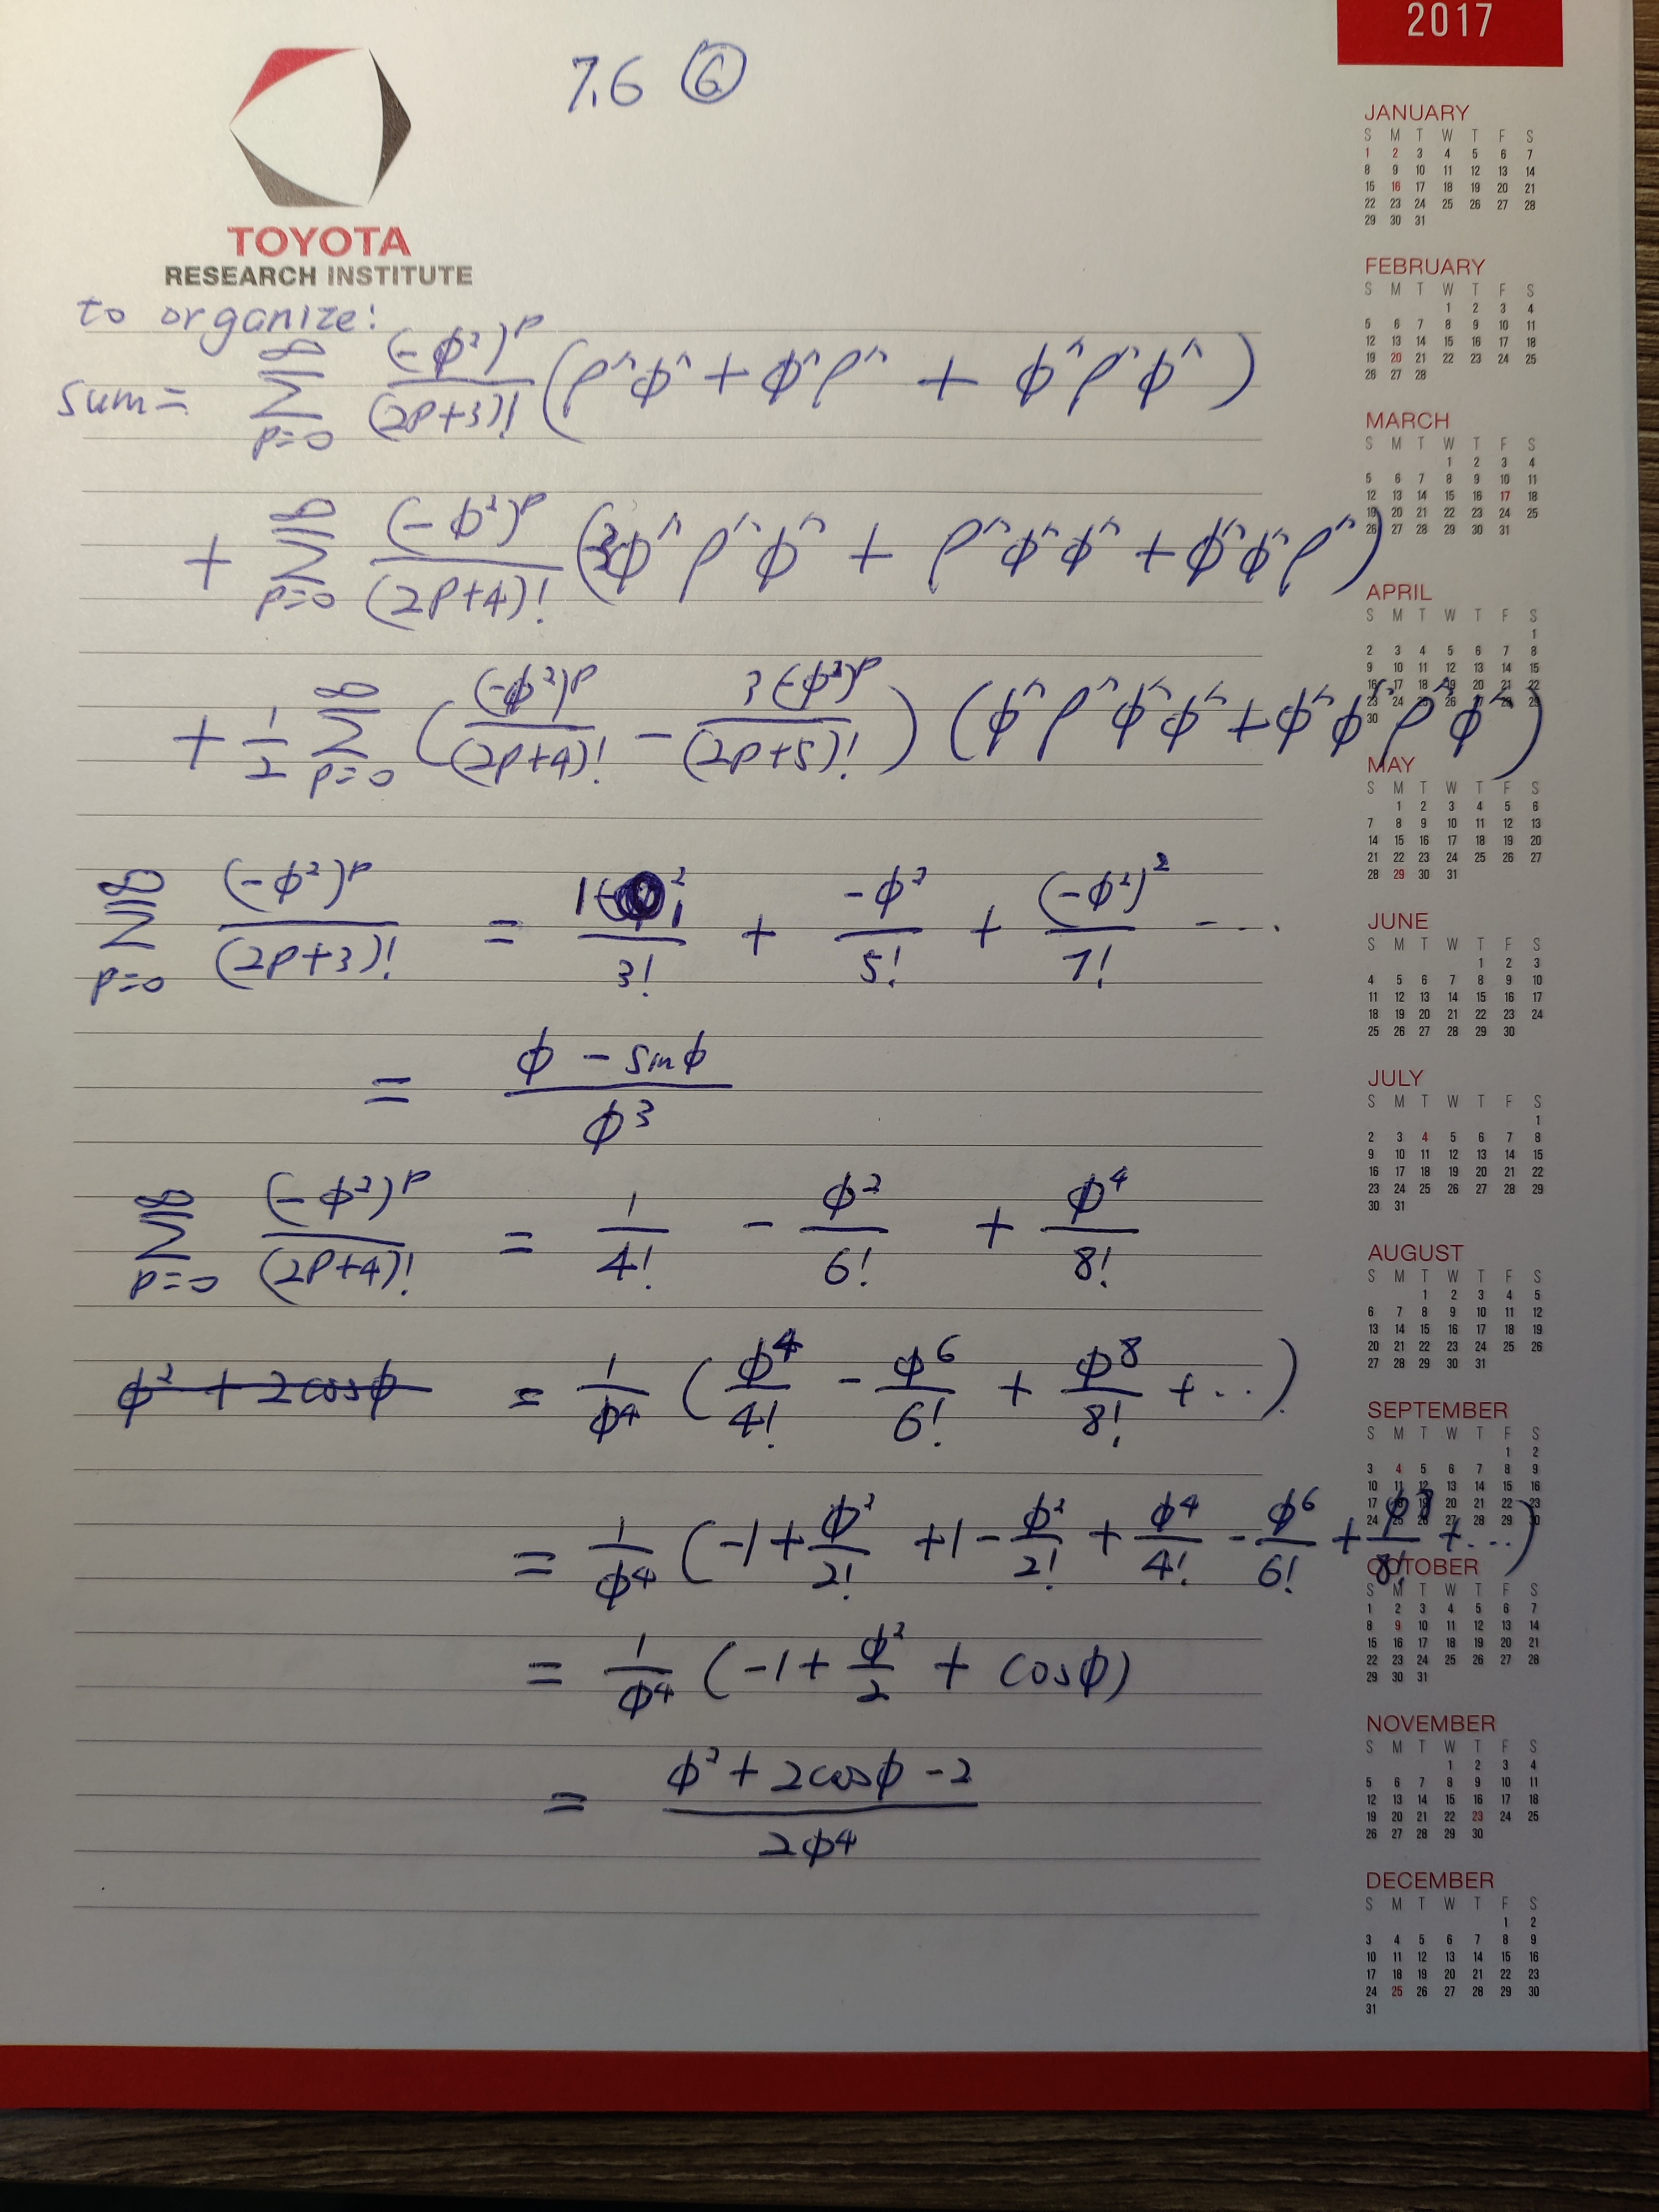 2017
7.6 ⑥
TOYOTA
RESEARCH INSTITUTE
to organize:
sum = ∑_{p=0}^{∞} (-ϕ²)^p / (2p+3)! (ρ^ϕ^ + ϕ^ρ^ + ϕ^ρ^ϕ^)
+ ∑_{p=0}^{∞} (-ϕ²)^p / (2p+4)! (-3ϕ^ρ^ϕ^ + ρ^ϕ^ϕ^ + ϕ^ϕ^ρ^)
+ 1/2 ∑_{p=0}^{∞} ( (-ϕ²)^p / (2p+4)! - 3(-ϕ²)^p / (2p+5)! ) (ϕ^ρ^ϕ^ϕ^ + ϕ^ϕ^ρ^ϕ^)
∑_{p=0}^{∞} (-ϕ²)^p / (2p+3)! = 1 / 3! + -ϕ² / 5! + (-ϕ²)² / 7! ...
= ϕ - sinϕ / ϕ³
∑_{p=0}^{∞} (-ϕ²)^p / (2p+4)! = 1 / 4! - ϕ² / 6! + ϕ⁴ / 8!
ϕ² + 2cosϕ = 1/ϕ⁴ ( ϕ⁴/4! - ϕ⁶/6! + ϕ⁸/8! + ... )
= 1/ϕ⁴ ( -1 + ϕ²/2! + 1 - ϕ²/2! + ϕ⁴/4! - ϕ⁶/6! + ϕ⁸/8! + ... )
= 1/ϕ⁴ ( -1 + ϕ²/2 + cosϕ )
= ϕ² + 2cosϕ - 2 / 2ϕ⁴
JANUARY
S M T W T F S
1 2 3 4 5 6 7
8 9 10 11 12 13 14
15 16 17 18 19 20 21
22 23 24 25 26 27 28
29 30 31
FEBRUARY
S M T W T F S
1 2 3 4
5 6 7 8 9 10 11
12 13 14 15 16 17 18
19 20 21 22 23 24 25
26 27 28
MARCH
S M T W T F S
1 2 3 4
5 6 7 8 9 10 11
12 13 14 15 16 17 18
19 20 21 22 23 24 25
26 27 28 29 30 31
APRIL
S M T W T F S
1
2 3 4 5 6 7 8
9 10 11 12 13 14 15
16 17 18 19 20 21 22
23 24 25 26 27 28 29
30
MAY
S M T W T F S
1 2 3 4 5 6
7 8 9 10 11 12 13
14 15 16 17 18 19 20
21 22 23 24 25 26 27
28 29 30 31
JUNE
S M T W T F S
1 2 3
4 5 6 7 8 9 10
11 12 13 14 15 16 17
18 19 20 21 22 23 24
25 26 27 28 29 30
JULY
S M T W T F S
1
2 3 4 5 6 7 8
9 10 11 12 13 14 15
16 17 18 19 20 21 22
23 24 25 26 27 28 29
30 31
AUGUST
S M T W T F S
1 2 3 4 5
6 7 8 9 10 11 12
13 14 15 16 17 18 19
20 21 22 23 24 25 26
27 28 29 30 31
SEPTEMBER
S M T W T F S
1 2
3 4 5 6 7 8 9
10 11 12 13 14 15 16
17 18 19 20 21 22 23
24 25 26 27 28 29 30
OCTOBER
S M T W T F S
1 2 3 4 5 6 7
8 9 10 11 12 13 14
15 16 17 18 19 20 21
22 23 24 25 26 27 28
29 30 31
NOVEMBER
S M T W T F S
1 2 3 4
5 6 7 8 9 10 11
12 13 14 15 16 17 18
19 20 21 22 23 24 25
26 27 28 29 30
DECEMBER
S M T W T F S
1 2
3 4 5 6 7 8 9
10 11 12 13 14 15 16
17 18 19 20 21 22 23
24 25 26 27 28 29 30
31